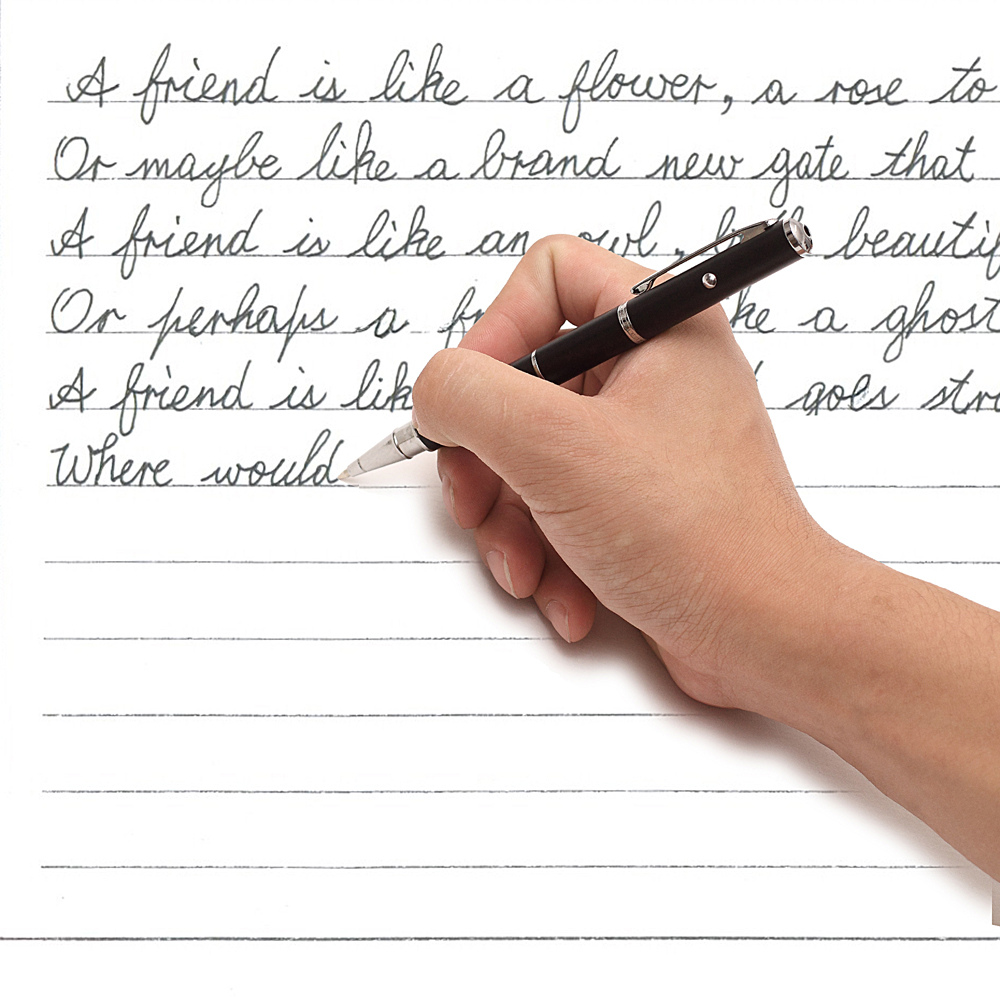 A friend is like a flower, a rose to
Or maybe like a brand new gate that
A friend is like an owl, beautif
Or perhaps a a ghost
A friend is goes
Where would